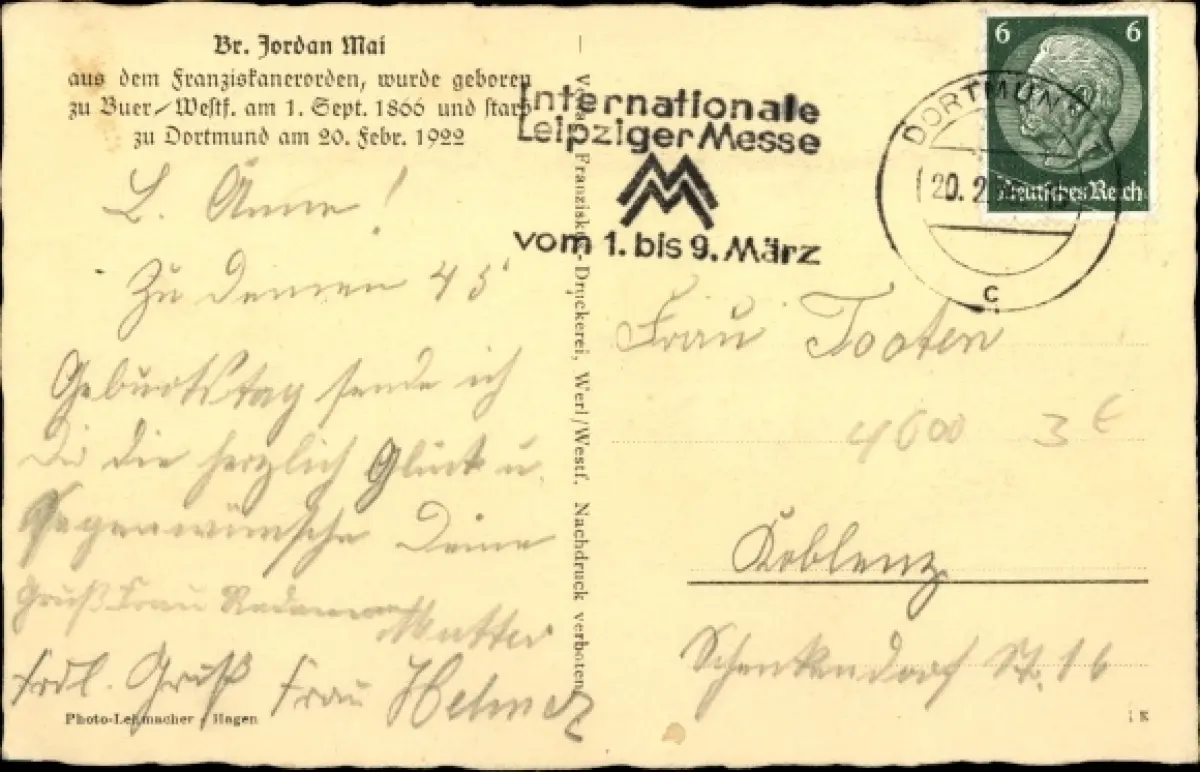 Br. Jordan Mai
aus dem Franziskanerorden, wurde geboren
zu Buer/Westf. am 1. Sept. 1866 und starb
zu Dortmund am 20. Febr. 1922
L. Änne!
Zu Deinen 45
Geburtstag sende ich
Dir die herzlich Glück u.
Segenwünsche Deine
Mutter
Gruß Frau
frdl. Gruß Frau
Photo-Leßmacher, Hagen
Franziskus-Druckerei, Werl/Westf. Nachdruck verboten.
Internationale
Leipziger Messe
MM
vom 1. bis 9. März
DORTMUND
20.2.
c
6 6
Deutsches Reich
Frau Tooten
4600 3 €
Koblenz
Schenkendorf Str. 16